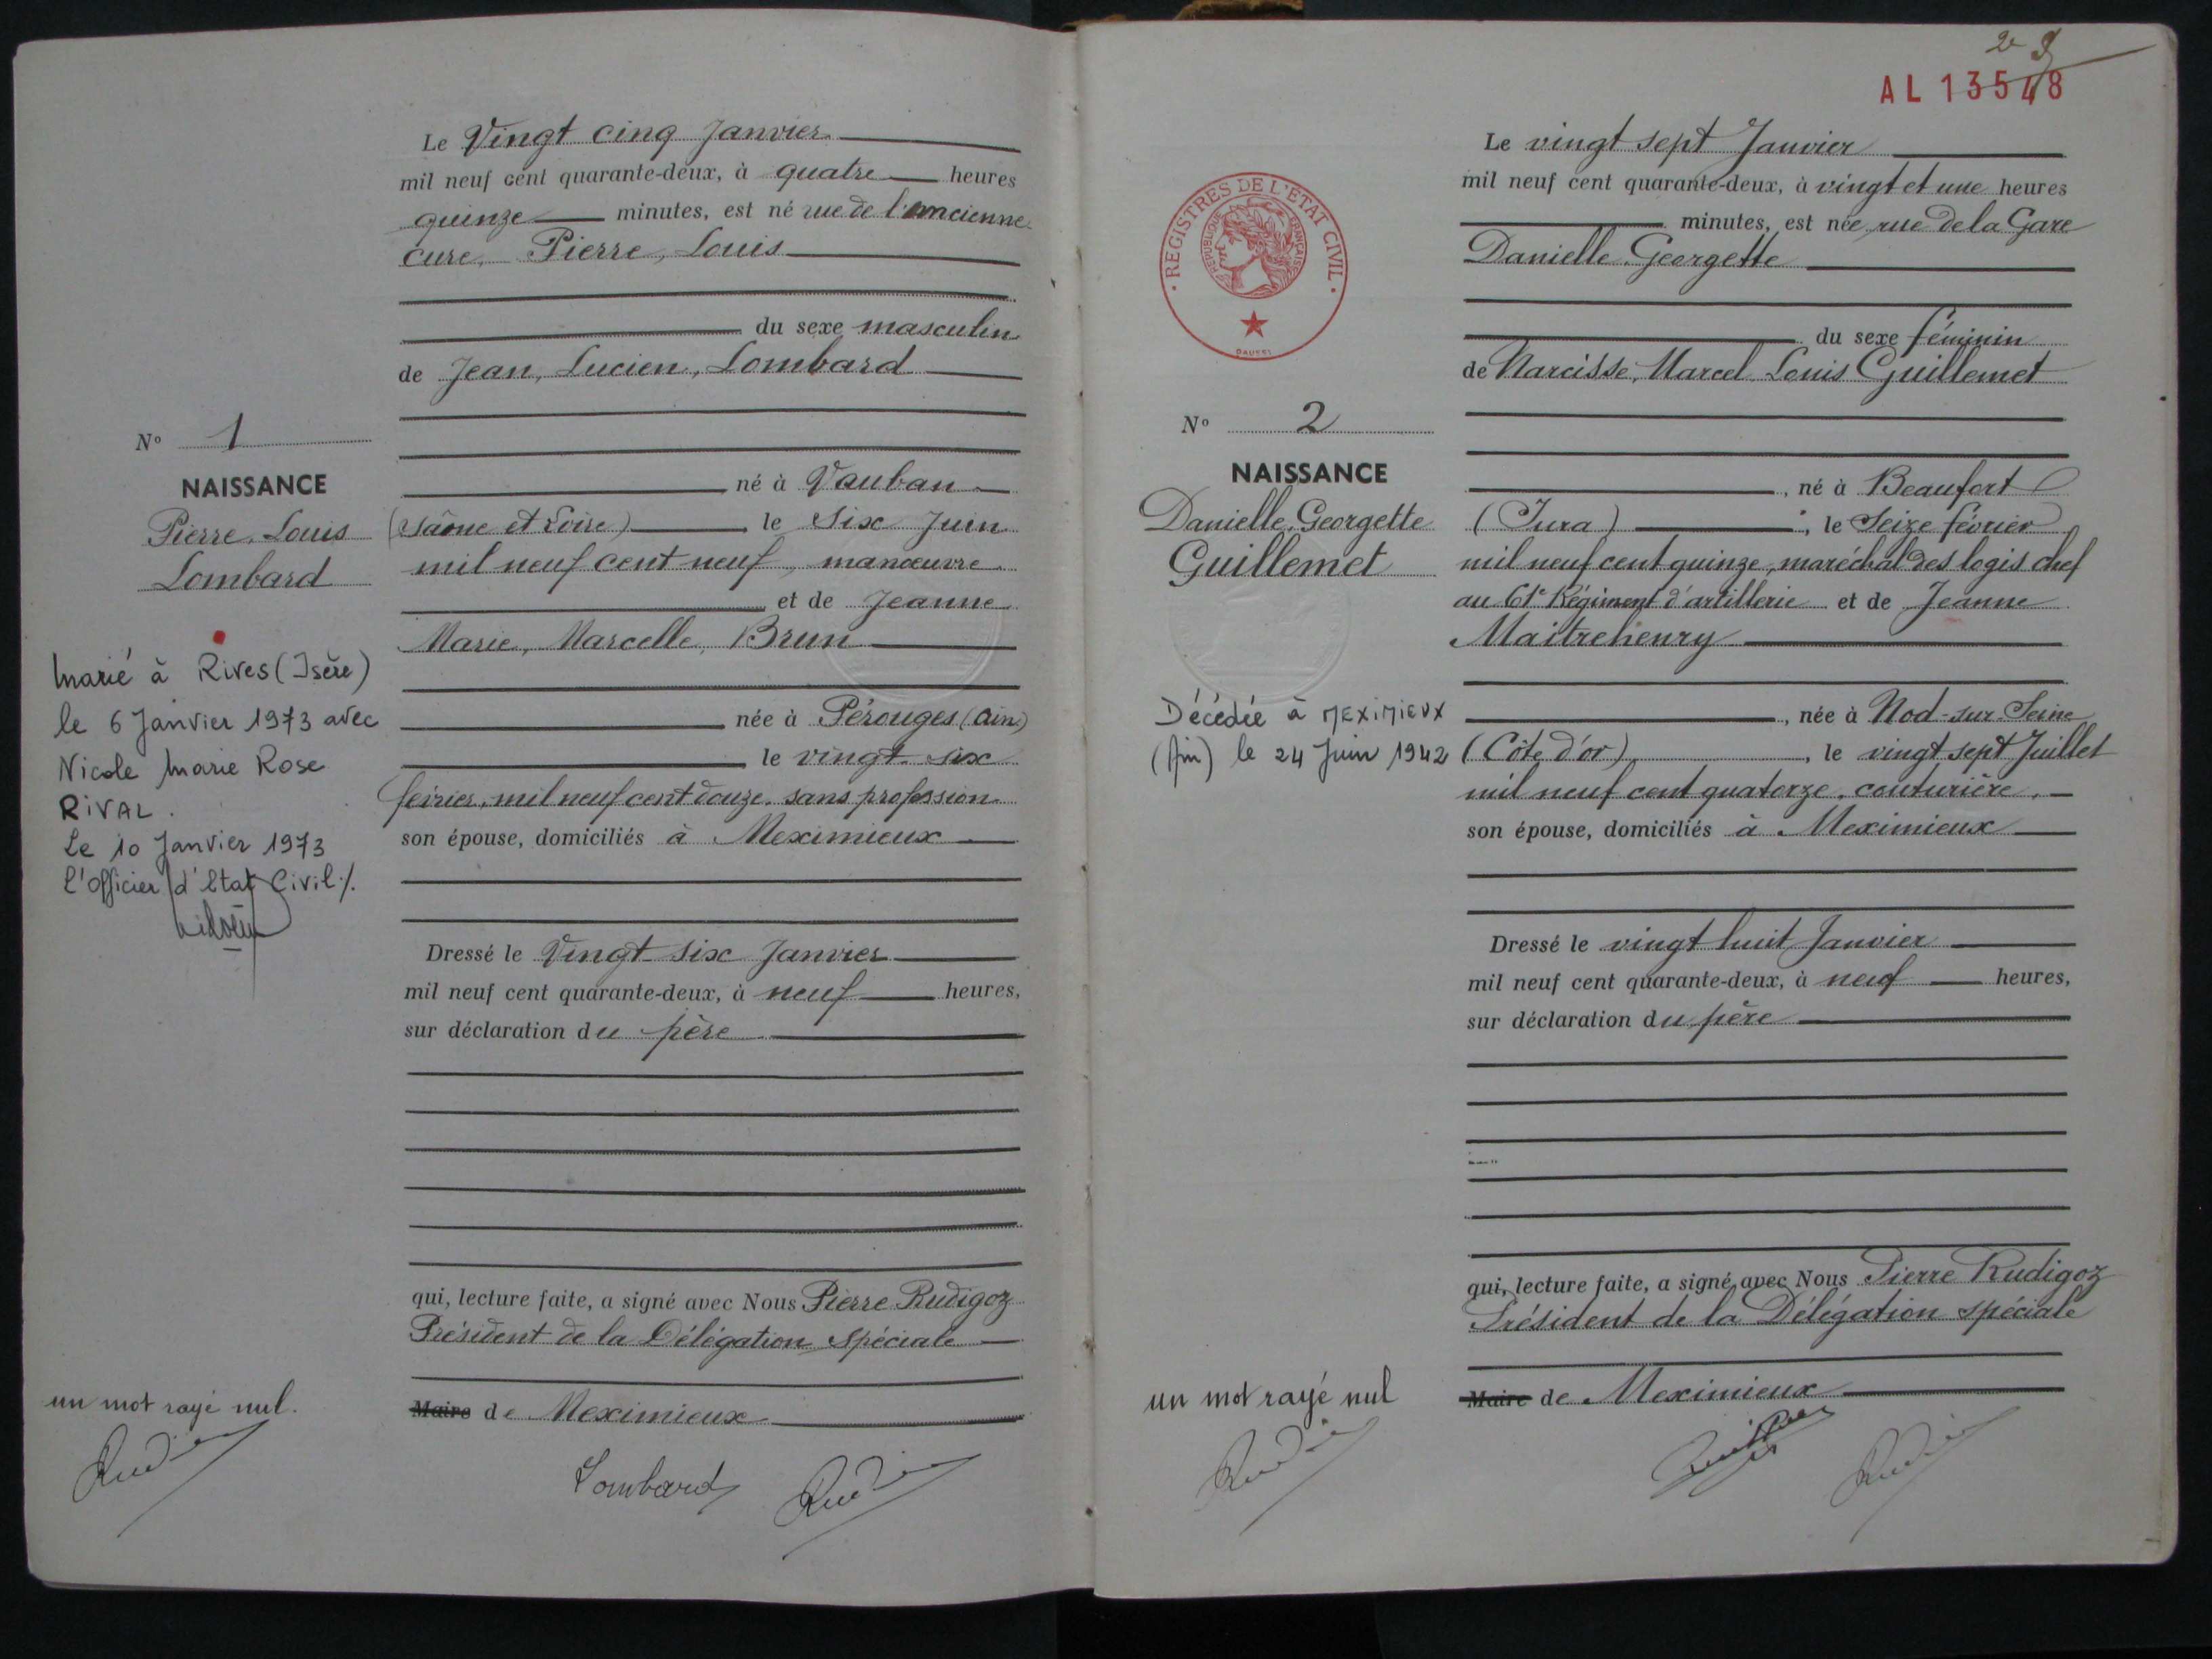 Le Vingt cinq Janvier
mil neuf cent quarante-deux, à quatre heures
quinze minutes, est né rue de l'ancienne
cure, Pierre, Louis
du sexe masculin
de Jean, Lucien, Lombard
né à Vauban
(Saône et Loire) le Six Juin
mil neuf cent neuf, manœuvre
et de Jeanne
Marie, Marcelle, Brun
née à Pérouges (Ain)
le vingt-six
février, mil neuf cent douze, sans profession
son épouse, domiciliés à Meximieux
Dressé le Vingt-six Janvier
mil neuf cent quarante-deux, à neuf heures,
sur déclaration du père
qui, lecture faite, a signé avec Nous Pierre Rudigoz
Président de la Délégation spéciale
Maire de Meximieux
Lombard
N° 1
NAISSANCE
Pierre, Louis
Lombard
Marié à Rives (Isère)
le 6 Janvier 1973 avec
Nicole Marie Rose
RIVAL.
Le 10 Janvier 1973
l'Officier d'Etat Civil ./.
un mot rayé nul.
AL 13548
REGISTRES DE L'ÉTAT CIVIL
RÉPUBLIQUE FRANÇAISE
Le vingt sept Janvier
mil neuf cent quarante-deux, à vingt et une heures
minutes, est née, rue de la Gare
Danielle, Georgette
du sexe féminin
de Narcisse, Marcel Louis Guillemet
, né à Beaufort
(Jura), le Seize février
mil neuf cent quinze, maréchal des logis chef
au 61e Régiment d'artillerie et de Jeanne
Maitrehenry
, née à Nod-sur-Seine
(Côte d'or), le vingt sept Juillet
mil neuf cent quatorze, couturière,
son épouse, domiciliés à Meximieux
Dressé le vingt huit Janvier
mil neuf cent quarante-deux, à neuf heures,
sur déclaration du père
qui, lecture faite, a signé avec Nous Pierre Rudigoz
Président de la Délégation spéciale
Maire de Meximieux
N° 2
NAISSANCE
Danielle, Georgette
Guillemet
Décédée à MEXIMIEUX
(Ain) le 24 Juin 1942
un mot rayé nul